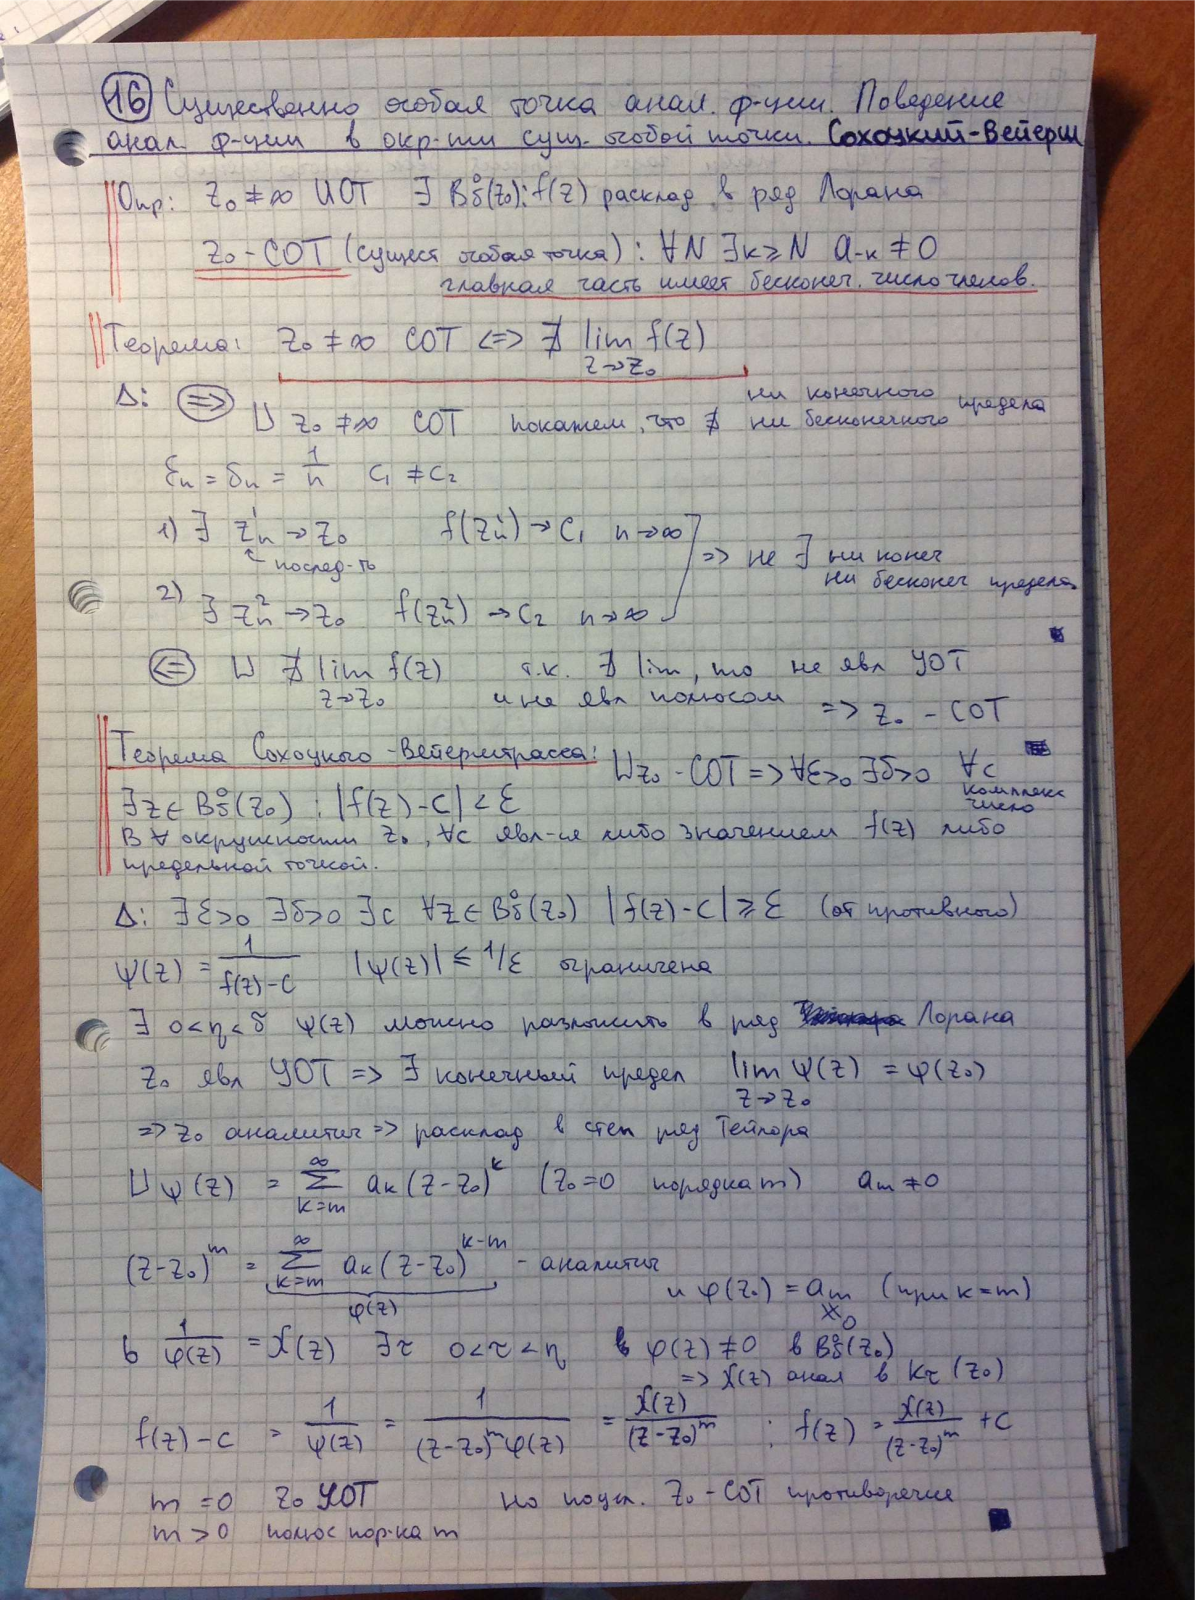 16 Существенно особая точка анал. ф-ции. Поведение
анал. ф-ции в окр-ти сущ. особой точки. Сохоцкий-Вейерш
Опр: z₀ ≠ ∞ ИОТ ∃ B̊δ(z₀): f(z) расклад в ряд Лорана
z₀ - СОТ (сущест особая точка): ∀N ∃k ≥ N a₋ₖ ≠ 0
главная часть имеет бесконеч. число членов.
Теорема: z₀ ≠ ∞ СОТ <=> ∄ lim f(z)
z→z₀
Δ: (=>) ⊔ z₀ ≠ ∞ СОТ покажем, что ∄ ни конечного ни бесконечного предела
εₙ = δₙ = 1/n c₁ ≠ c₂
1) ∃ zₙ¹ → z₀ f(zₙ¹) → c₁ n → ∞
послед-ть
=> не ∃ ни конеч
ни бесконеч предела
2) ∃ zₙ² → z₀ f(zₙ²) → c₂ n → ∞
(<=) ⊔ ∄ lim f(z) т.к. ∄ lim, то не явл УОТ
z→z₀ и не явл полюсом => z₀ - СОТ
Теорема Сохоцкого-Вейерштрасса: ⊔ z₀ - СОТ => ∀ε>0 ∃δ>0 ∀c
комплекс
число
∃z ∈ B̊δ(z₀) : |f(z) - c| < ε
В ∀ окружности z₀, ∀c явл-ся либо значением f(z) либо
предельной точкой.
Δ: ∃ε>0 ∃δ>0 ∃c ∀z ∈ B̊δ(z₀) |f(z) - c| ≥ ε (от противного)
ψ(z) = 1/(f(z)-c) |ψ(z)| ≤ 1/ε ограничена
∃ 0<η<δ ψ(z) можно разложить в ряд Лорана
z₀ явл УОТ => ∃ конечный предел lim ψ(z) = φ(z₀)
z→z₀
=> z₀ аналитич => расклад в степ ряд Тейлора
⊔ ψ(z) = ∑_{k=m}^∞ aₖ(z-z₀)^k (z₀=0 порядка m) aₘ ≠ 0
(z-z₀)^m = ∑_{k=m}^∞ aₖ(z-z₀)^{k-m} - аналитич
φ(z)
и φ(z₀) = aₘ (при k=m)
≠0
ь 1/φ(z) = χ(z) ∃τ 0<τ<η в φ(z) ≠ 0 в B̊δ(z₀)
=> χ(z) анал в Kτ(z₀)
f(z) - c = 1/ψ(z) = 1/((z-z₀)^m φ(z)) = χ(z)/(z-z₀)^m ; f(z) = χ(z)/(z-z₀)^m + c
m = 0 z₀ УОТ но по усл. z₀ - СОТ противоречие
m > 0 полюс пор-ка m